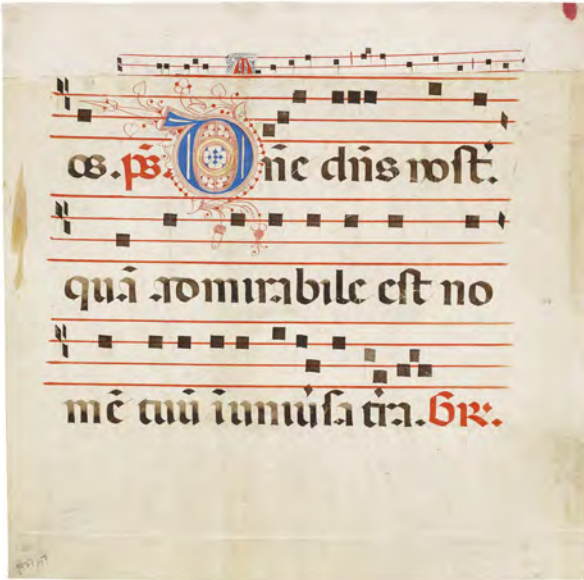 os. ps̃. Dñe dñs nost᷑.
quã admirabile est no
mẽ tuũ ĩuniũsa tr̃a. Gr̃.